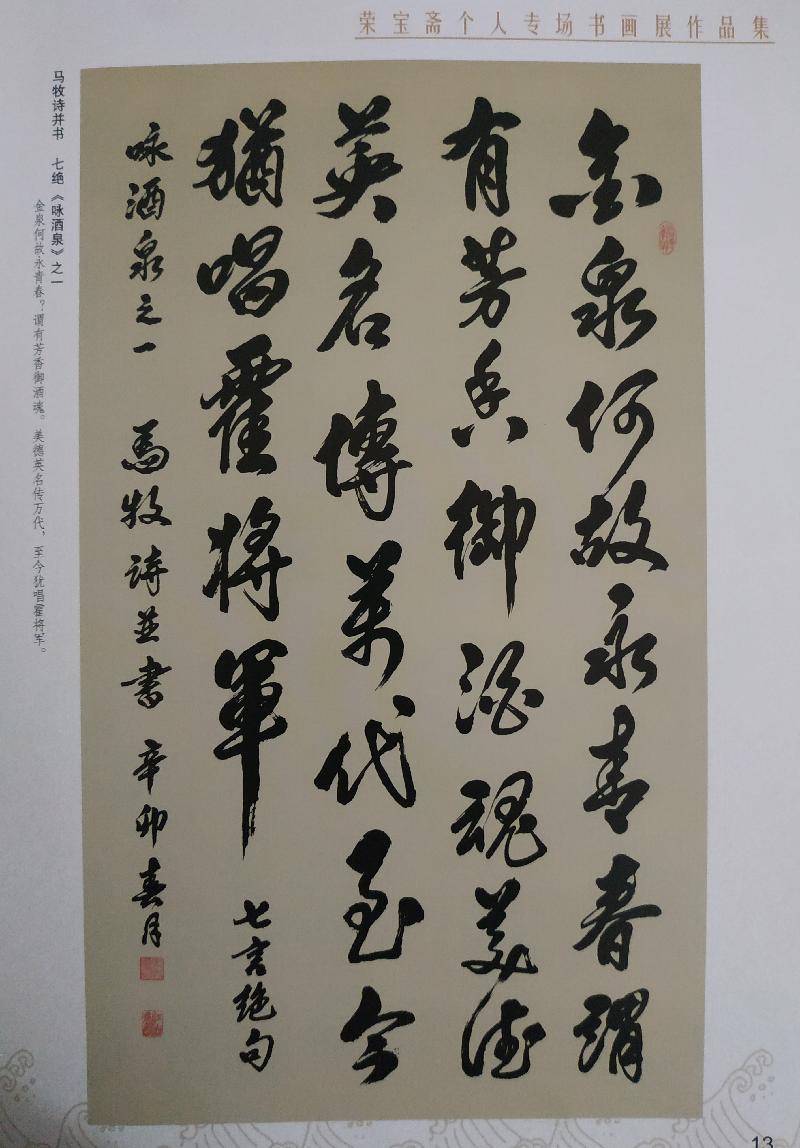 荣宝斋个人专场书画展作品集
金泉何故永青春謂
有芳香御酒魂美德
英名傳萬代至今
猶唱霍将軍 七言絶句
咏酒泉之一 馬牧詩並書 辛卯春月
马牧诗并书 七绝《咏酒泉》之一
金泉何故永青春？谓有芳香御酒魂。美德英名传万代，至今犹唱霍将军。
13